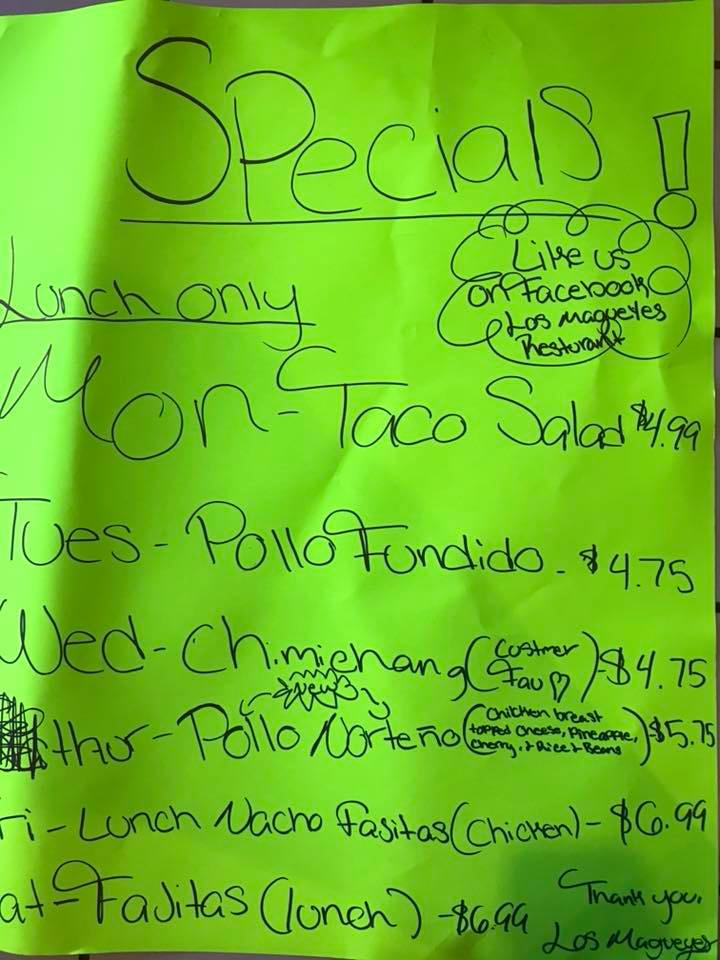 Specials!
Like us
on Facebook
Los Magueyes
Resturant
Lunch only
Mon-Taco Salad $4.99
Tues-Pollo Fundido - $4.75
Wed-Chimichang (Custmer Fav♡)-$4.75
New
thur-Pollo Norteño (Chicken breast
topped cheese, Pineapple,
Cherry, + Rice + Beans)-$5.75
ri-Lunch Nacho Fasitas (Chicken)-$6.99
at-Fajitas (lunch) -$6.99
Thank you,
Los Magueyes